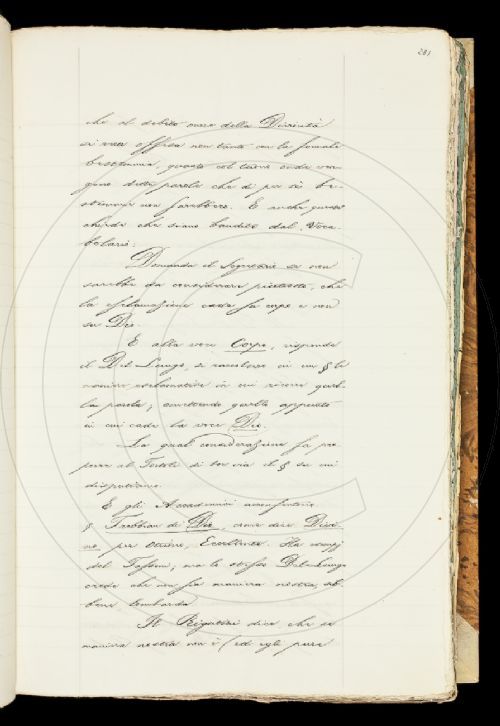 281
che il debito onore della Divinità
si vien offesa non tanto con la formale
bestemmia, quanto col tuono onde ven-
gono dette parole che di per sè be-
stemmie non sarebbero. E anche questi
chiede che siano banditi dal Voca-
bolario.
Domanda il Segretario se non
sarebbe da considerare piuttosto, che
la esclamazione cada su corpo e non
su Dio.
E alla voce Corpo, risponde
il Del Lungo, si raccolgono in un § le
maniere esclamative in cui ricorre quel-
la parola; omettendo quelle appunto
in cui cade la voce Dio.
La qual considerazione fa pro-
porre al Tortoli di tor via il § su cui
disputiamo.
E gli Accademici acconsentono.
§ Trebbian di Dio, come dire Divi-
no, per Ottimo, Eccellente. Ha esempj
del Tassoni; ma lo stesso Del Lungo
crede che non sia maniera nostra, ben-
lombarda
Il Rigutini dice che se
maniera nostra non è (ed egli pure